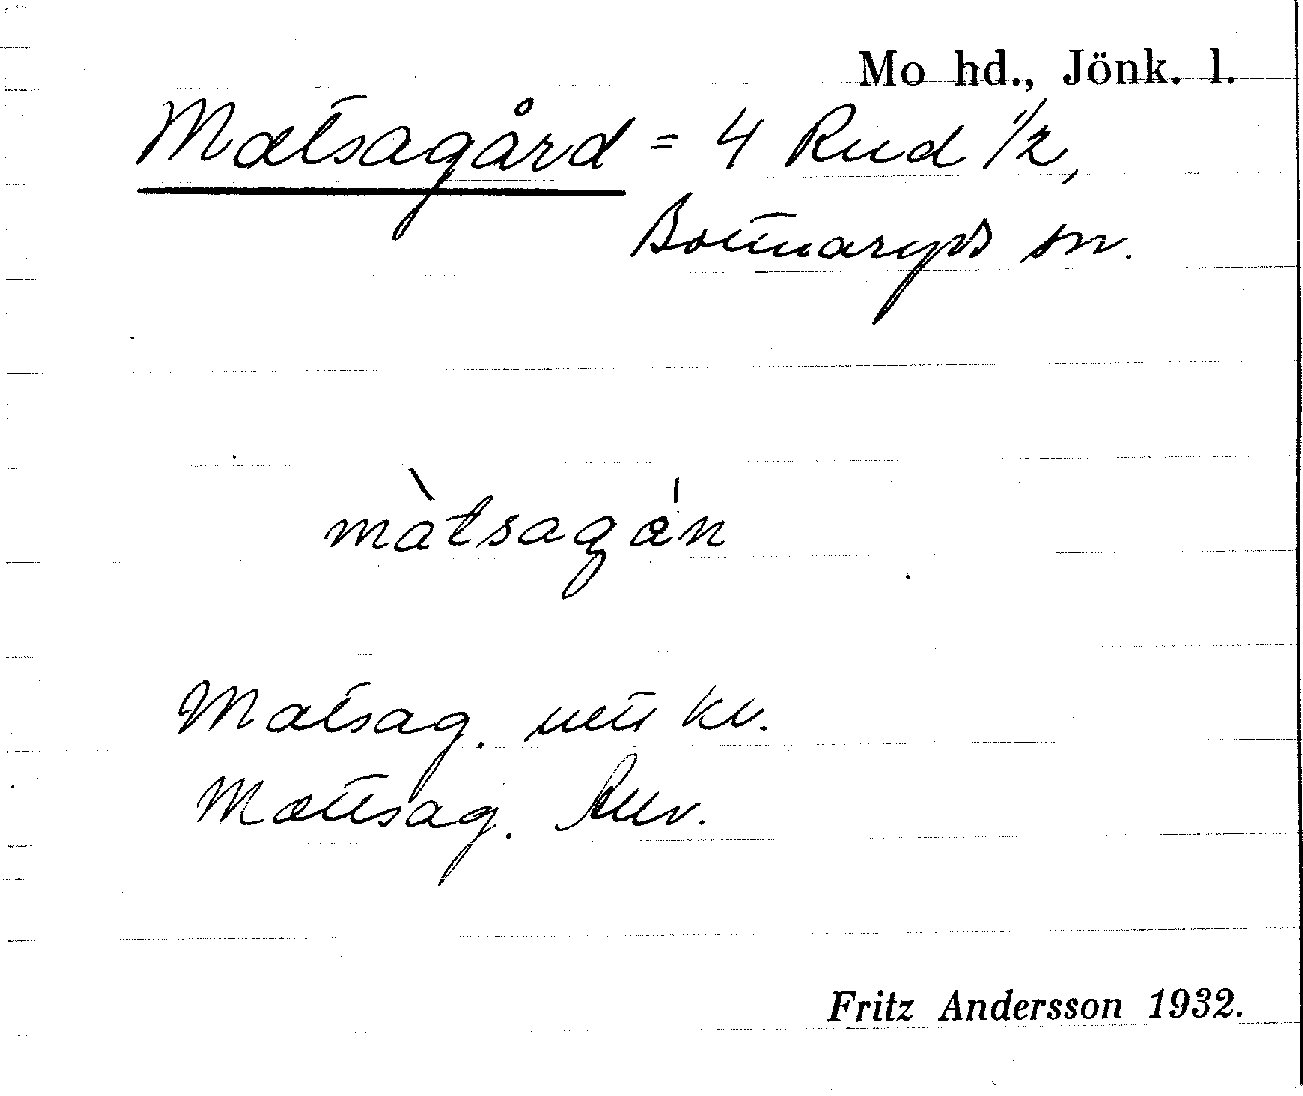 Mo hd., Jönk. l.
Matsagård = 4 Rud 1/2,
Bottnaryds sn.
màtsagán
Matsag. uttt kv.
Mattsag.
Fritz Andersson 1932.